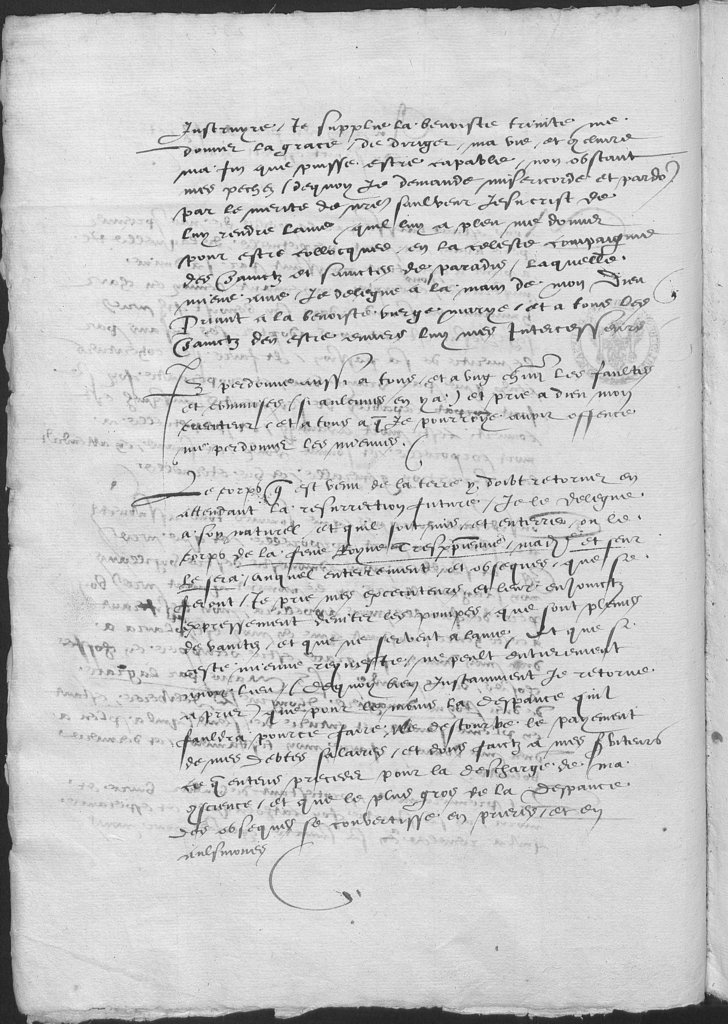 Instruyre / Je supplie la benoiste trinité me
donner la grace / de diriger / ma vie / et
ma fin que puisse estre capable / non obstant
mes pechez (de quoy Je demande misericorde et pardō)
par le merite de nrē saulveur Jesucrist de
luy rendre lame / quil luy a pleu me donner
pour estre collocquee / en la celeste compaignie
des Sainctz et sainctes de paradis / laquelle
mienne ame / Je delegue a la main de mon Dieu
Priant a la benoiste vierge marye / et a tous les
Sainctz den estre envers luy mes Intercesseurs
Je perdonne aussi a tous / et a ung chūn les faultes
et commises / (si aulcunes en y a) et prie a dieu mon
createur / et a tous a q̄ Je pourroye avoir offencé
me perdonner les miennes /
Le corps q̄ est venu de la terre y doibt retorner en
attendant la resurrection future / Je le delegue
a son naturel et quil soit mis / et enterré / ou le
corps de la feue Royne Tresxp̄ienne / ma et seur
le sera / auquel enterrement / et obseques / que se
feront / Je prie mes executeurs / et leur enjoinctz
expressement deviter les pompes / que sont plains
de vanitez / et que ne servent a lame / Et que si
ceste mienne requeste / ne peult entierement
avoir lieu / (de quoy bien Instamment Je retorne
a prier) que pour le moins la despance quil
fauldra pour ce faire / ne destourbe le payement
de mes debtes salaires / et dons faitz a mes s̄viteurs
ce q̄ entens preceder pour la descharge de ma
9science / et que le plus gros de la despance
des obseques se convertisse en prieres / et en
aulsmones